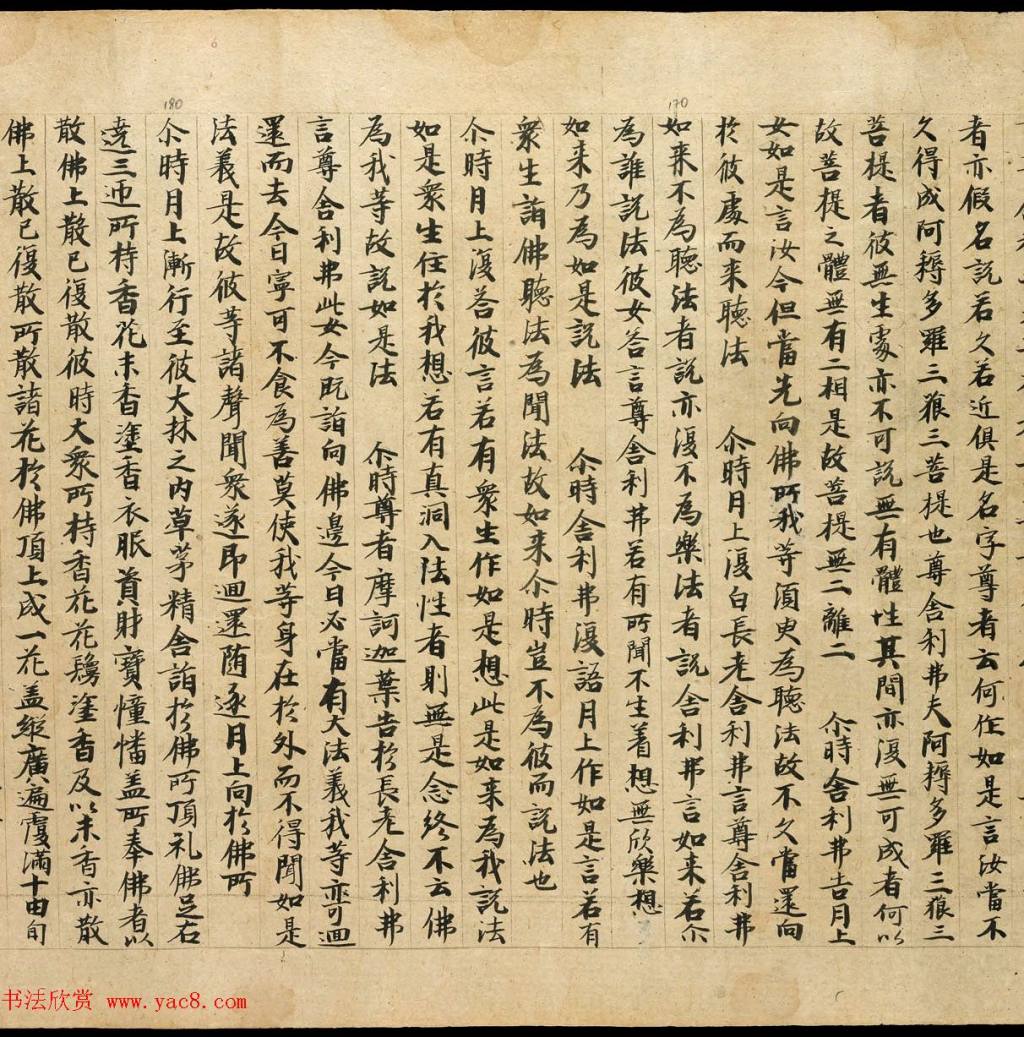 者亦假名説若久若近俱是名字尊者云何作如是言汝當不
久得成阿耨多羅三藐三菩提也尊舍利弗夫阿耨多羅三藐三
菩提者彼無生處亦不可説無有體性其間亦復無可成者何以
故菩提之體無有二相是故菩提無二離二 尒時舍利弗告月上
女如是言汝今但當先向佛所我等須臾為聽法故不久當還向
於彼處而来聽法 尒時月上復白長老舍利弗言尊舍利弗
如来不為聽法者説亦復不為樂法者説舍利弗言如来若尒
為誰説法彼女答言尊舍利弗若有所聞不生着想無欣樂想
如来乃為如是説法 尒時舍利弗復語月上作如是言若有
衆生詣佛聽法為聞法故如来尒時豈不為彼而説法也
尒時月上復答彼言若有衆生作如是想此是如来為我説法
如是衆生住於我想若有真洞入法性者則無是念終不云佛
為我等故説如是法 尒時尊者摩訶迦葉告於長老舍利弗
言尊舍利弗此女今既詣向佛邊今日必當有大法義我等亦可迴
還而去今日寧可不食為善莫使我等身在於外而不得聞如是
法義是故彼等諸聲聞衆遂即迴還随逐月上向於佛所
尒時月上漸行至彼大林之内草茅精舍詣於佛所頂礼佛足右
遶三迊所持香花末香塗香衣服資財寶幢幡盖所奉佛者以
散佛上散已復散彼時大衆所持香花花鬘塗香及以末香亦散
佛上散已復散所散諸花於佛頂上成一花盖縱廣遍覆滿十由旬
170
180
书法欣赏 www.yac8.com